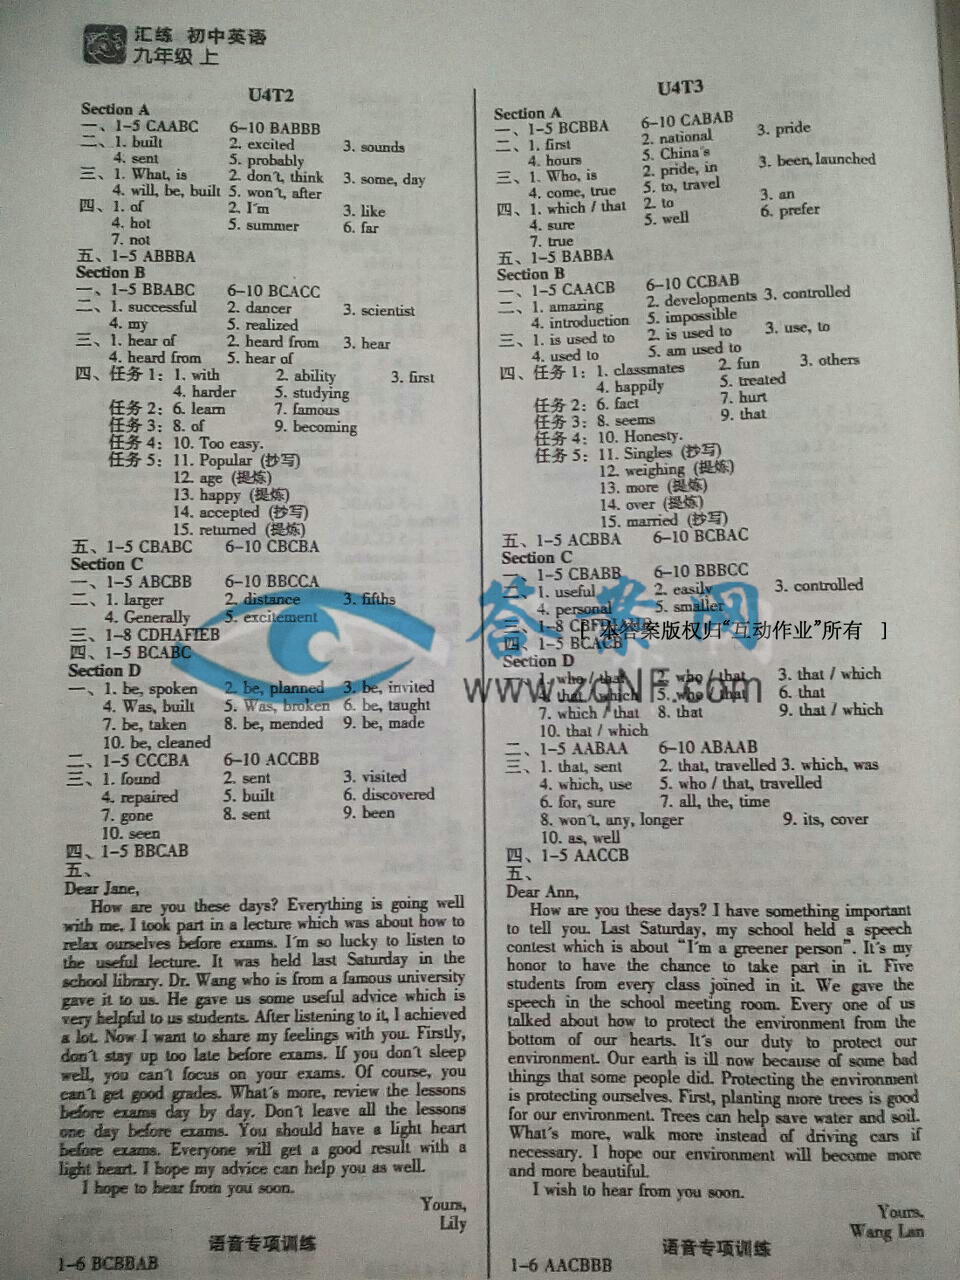 汇练 初中英语
九年级 上
U4T2
Section A
一、1-5 CAABC 6-10 BABBB
二、1. built 2. excited 3. sounds
4. sent 5. probably
三、1. What, is 2. don't, think 3. some, day
4. will, be, built 5. won't, after
四、1. of 2. I'm 3. like
4. hot 5. summer 6. far
7. not
五、1-5 ABBBA
Section B
一、1-5 BBABC 6-10 BCACC
二、1. successful 2. dancer 3. scientist
4. my 5. realized
三、1. hear of 2. heard from 3. hear
4. heard from 5. hear of
四、任务 1: 1. with 2. ability 3. first
4. harder 5. studying
任务 2: 6. learn 7. famous
任务 3: 8. of 9. becoming
任务 4: 10. Too easy.
任务 5: 11. Popular (抄写)
12. age (提炼)
13. happy (提炼)
14. accepted (抄写)
15. returned (提炼)
五、1-5 CBABC 6-10 CBCBA
Section C
一、1-5 ABCBB 6-10 BBCCA
二、1. larger 2. distance 3. fifths
4. Generally 5. excitement
三、1-8 CDHAFIEB
四、1-5 BCABC
Section D
一、1. be, spoken 2. be, planned 3. be, invited
4. Was, built 5. Was, broken 6. be, taught
7. be, taken 8. be, mended 9. be, made
10. be, cleaned
二、1-5 CCCBA 6-10 ACCBB
三、1. found 2. sent 3. visited
4. repaired 5. built 6. discovered
7. gone 8. sent 9. been
10. seen
四、1-5 BBCAB
五、
Dear Jane,
How are you these days? Everything is going well
with me. I took part in a lecture which was about how to
relax ourselves before exams. I'm so lucky to listen to
the useful lecture. It was held last Saturday in the
school library. Dr. Wang who is from a famous university
gave it to us. He gave us some useful advice which is
very helpful to us students. After listening to it, I achieved
a lot. Now I want to share my feelings with you. Firstly,
don't stay up too late before exams. If you don't sleep
well, you can't focus on your exams. Of course, you
can't get good grades. What's more, review the lessons
before exams day by day. Don't leave all the lessons
one day before exams. You should have a light heart
before exams. Everyone will get a good result with a
light heart. I hope my advice can help you as well.
I hope to hear from you soon.
Yours,
Lily
语音专项训练
1-6 BCBBAB
U4T3
Section A
一、1-5 BCBBA 6-10 CABAB
二、1. first 2. national 3. pride
4. hours 5. China's
三、1. Who, is 2. pride, in 3. been, launched
4. come, true 5. to, travel
四、1. which / that 2. to 3. an
4. sure 5. well 6. prefer
7. true
五、1-5 BABBA
Section B
一、1-5 CAACB 6-10 CCBAB
二、1. amazing 2. developments 3. controlled
4. introduction 5. impossible
三、1. is used to 2. is used to 3. use, to
4. used to 5. am used to
四、任务 1: 1. classmates 2. fun 3. others
4. happily 5. treated
任务 2: 6. fact 7. hurt
任务 3: 8. seems 9. that
任务 4: 10. Honesty.
任务 5: 11. Singles (抄写)
12. weighing (提炼)
13. more (提炼)
14. over (提炼)
15. married (抄写)
五、1-5 ACBBA 6-10 BCBAC
Section C
一、1-5 CBABB 6-10 BBBCC
二、1. useful 2. easily 3. controlled
4. personal 5. smaller
三、1-8
[ 本答案版权归“互动作业”所有 ]
四、1-5 BCACB
答案网
www.zqNF.com
Section D
一、1. who / that 2. who / that 3. that / which
4. that / which 5. who / that 6. that
7. which / that 8. that 9. that / which
10. that / which
二、1-5 AABAA 6-10 ABAAB
三、1. that, sent 2. that, travelled 3. which, was
4. which, use 5. who / that, travelled
6. for, sure 7. all, the, time
8. won't, any, longer 9. its, cover
10. as, well
四、1-5 AACCB
五、
Dear Ann,
How are you these days? I have something important
to tell you. Last Saturday, my school held a speech
contest which is about "I'm a greener person". It's my
honor to have the chance to take part in it. Five
students from every class joined in it. We gave the
speech in the school meeting room. Every one of us
talked about how to protect the environment from the
bottom of our hearts. It's our duty to protect our
environment. Our earth is ill now because of some bad
things that some people did. Protecting the environment
is protecting ourselves. First, planting more trees is good
for our environment. Trees can help save water and soil.
What's more, walk more instead of driving cars if
necessary. I hope our environment will become more
and more beautiful.
I wish to hear from you soon.
Yours,
Wang Lan
语音专项训练
1-6 AACBBB